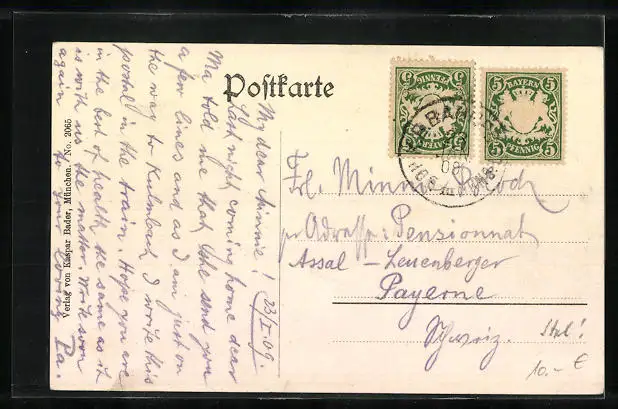 Postkarte
My dear Minnie! 23/I.09.
Last night, coming home dear
Ma told me that she send you
a few lines and as I am just on
the way to Kulmbach I write this
postal in the train. Hope you are
in the best of health, the same as it
is with us the matter. Write soon
again to your loving Pa.
Verlag von Kaspar Bader, München, No. 2065
5 BAYERN 5
5 PFENNIG 5
5 BAYERN 5
5 PFENNIG 5
BAM
Frl. Minnie
pr Adresse: Pensionnat
Assal - Leuenberger
Payerne
Schweiz.
10.- €